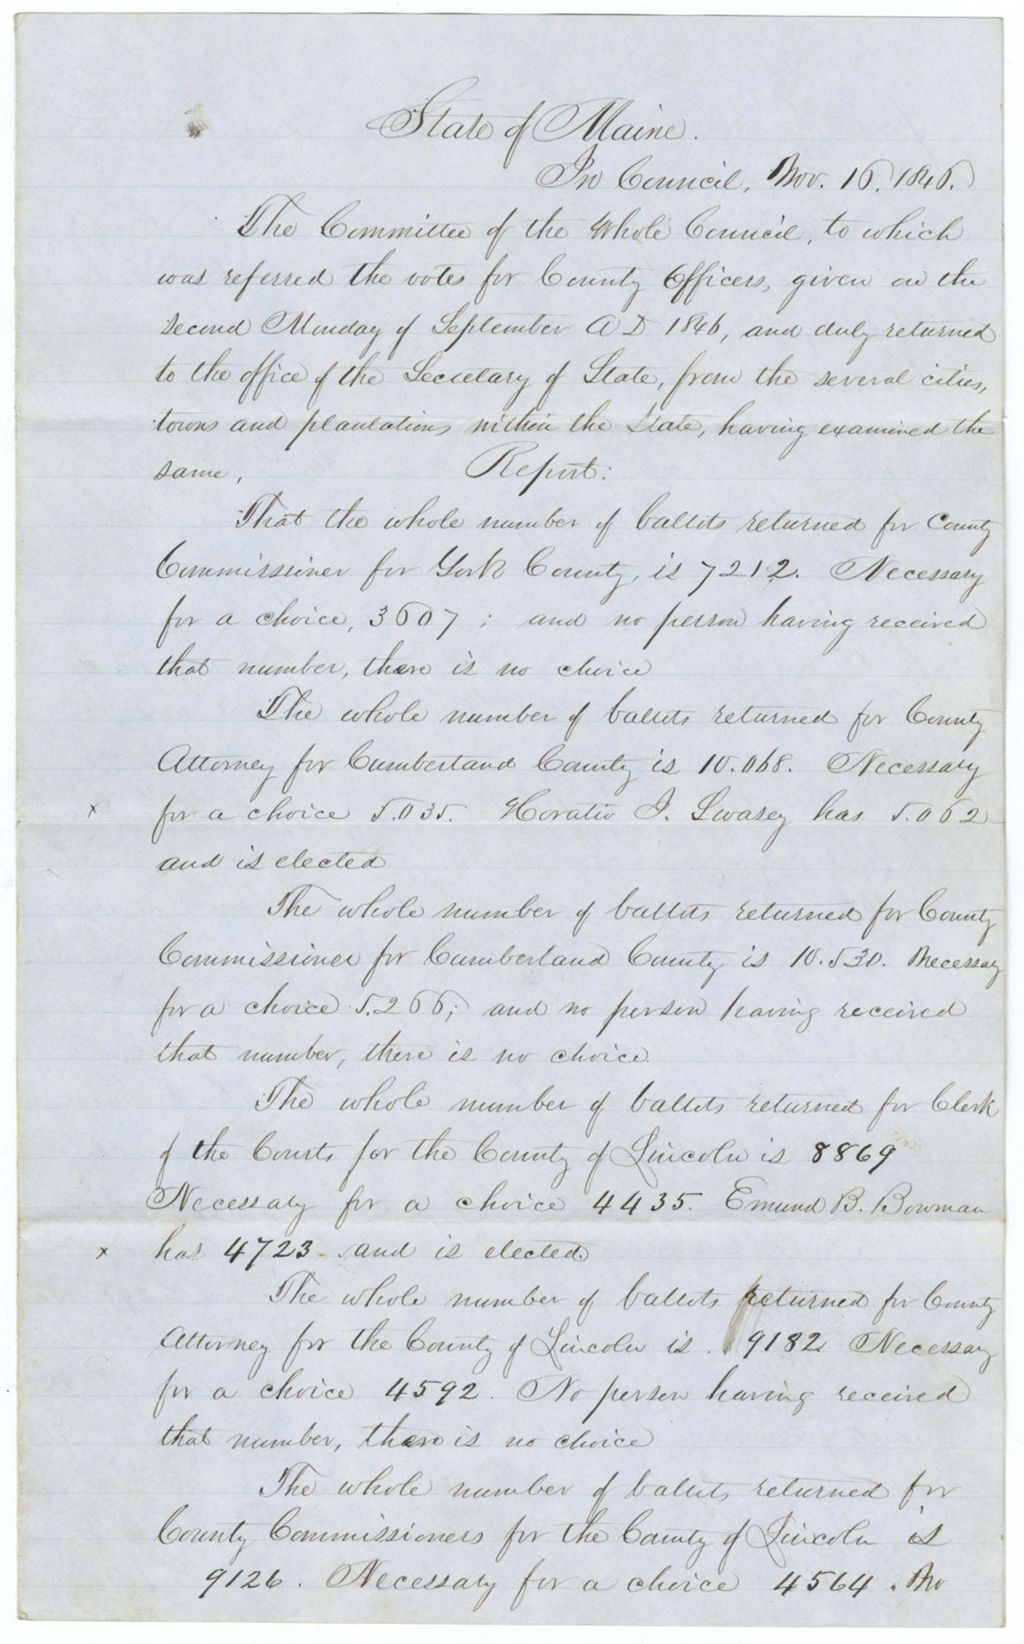 State of Maine.
In Council, Nov. 16, 1846.
The Committee of the Whole Council, to which
was referred the votes for County Officers, given on the
second Monday of September A D 1846, and duly returned
to the office of the Secretary of State, from the several cities,
towns and plantations within the State, having examined the
same, Report:
That the whole number of ballots returned for County
Commissioner for York County, is 7212. Necessary
for a choice, 3607; and no person having received
that number, there is no choice
The whole number of ballots returned for County
Attorney for Cumberland County is 10.068. Necessary
x for a choice 5.035. Horatio J. Swasey has 5.062
and is elected
The whole number of ballots returned for County
Commissioner for Cumberland County is 10.530. Necessary
for a choice 5.266; and no person having received
that number, there is no choice.
The whole number of ballots returned for Clerk
of the Courts for the County of Lincoln is 8869
Necessary for a choice 4435. Emund B. Bowman
x has 4723 and is elected
The whole number of ballots returned for County
Attorney for the County of Lincoln is 9182 Necessary
for a choice 4592. No person having received
that number, there is no choice
The whole number of ballots returned for
County Commissioners for the County of Lincoln is
9126. Necessary for a choice 4564. No